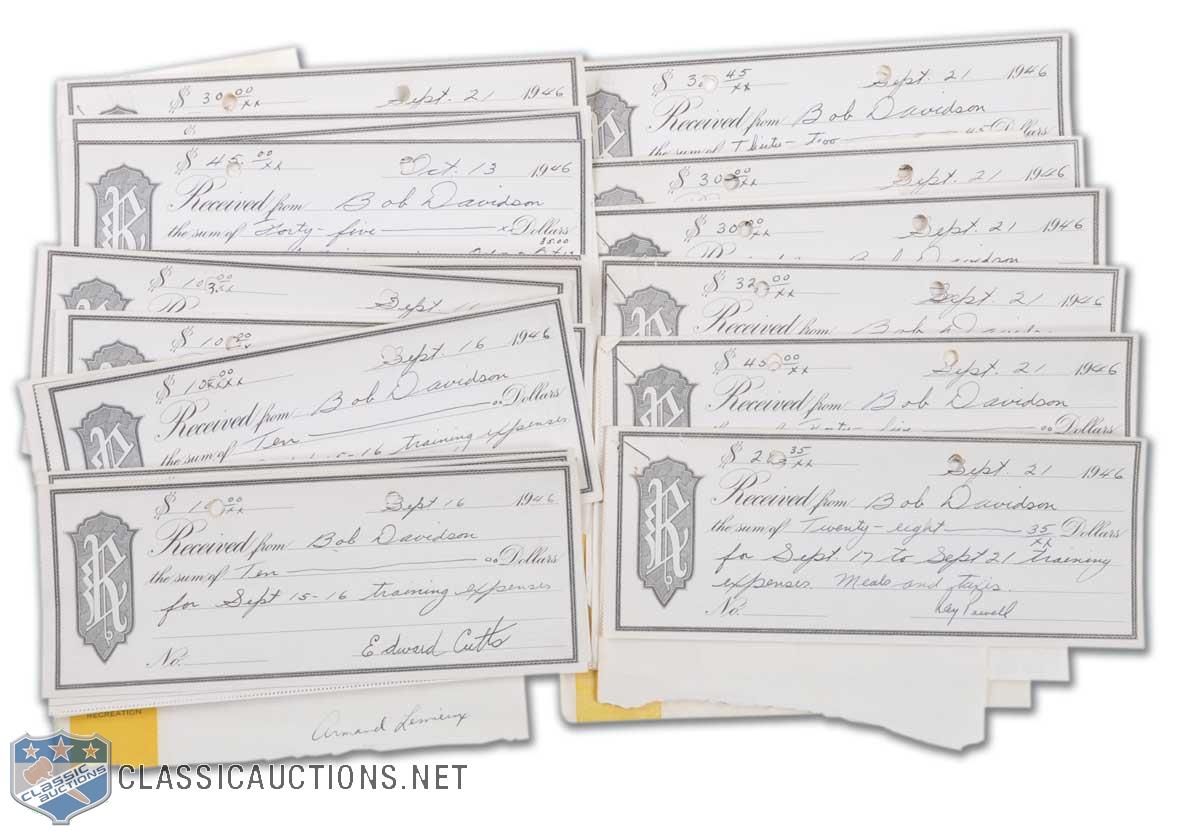 $ 30 00/xx Sept. 21 1946
$ 45. 00/xx Oct. 13 1946
Received from Bob Davidson
the sum of Forty-five x Dollars
35.00
$ 10 00/xx Sept. 1946
$ 10 00 Sept. 16
$ 10 xx Sept. 16 1946
Received from Bob Davidson
the sum of Ten 00 Dollars
15-16 training expenses
$ 1 00/xx Sept 16 1946
Received from Bob Davidson
the sum of Ten 00 Dollars
for Sept 15-16 training expenses
Edward Cutts
No.
RECREATION
Armand Lemieux
$ 3 45/xx Sept. 21 1946
Received from Bob Davidson
the sum of 45 Dollars
$ 30 00/xx Sept. 21 1946
$ 30 00 Sept. 21 1946
Received from Bob Davidson
$ 32 00/xx Sept. 21 1946
Received from Bob Davidson
$ 45 00/xx Sept. 21 1946
Received from Bob Davidson
the sum of Forty-five 00 Dollars
$ 2 35/xx Sept. 21 1946
Received from Bob Davidson
the sum of Twenty-eight 35/xx Dollars
for Sept. 17 to Sept 21 training
expenses. Meals and taxis.
No. Ray Powell
CLASSIC AUCTIONS
CLASSICAUCTIONS.NET